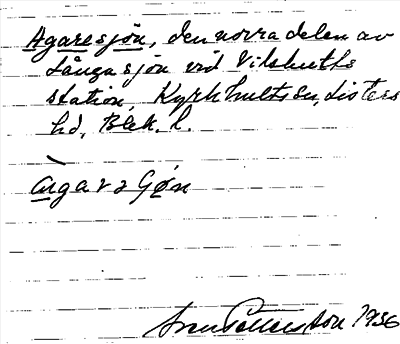 Agaresjön, den norra delen av
Långasjön vid Vilshults
station, Kyrkhults sn, Listers
hd, Blek. l.
agarasjøn
Sven Pettersson 1936